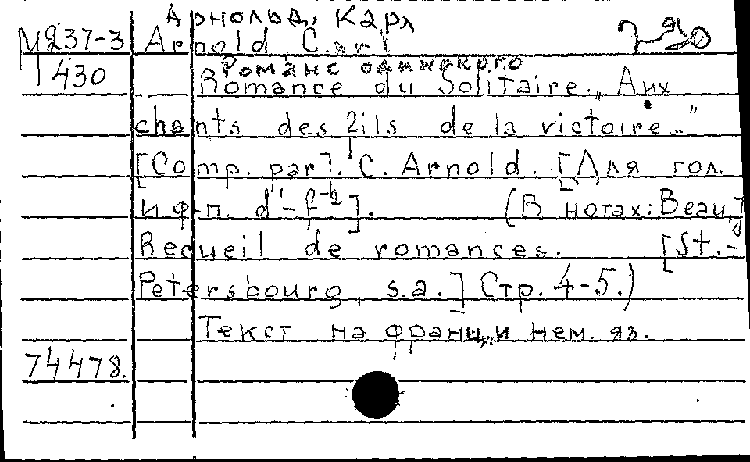 Арнольд, Карл
М237-3 Arnold Carl
Романс одинокого
430 Romance du Solitaire. „Aux
chants des fils de la victoire..."
[Comp. par]. C. Arnold. [Для гол.
и ф-п. d¹-f²]. (В нотах: Beau,]
Recueil de romances. [St.-
Petersbourg, s.a.] Стр. 4-5.)
Текст на франц. и нем. яз.
74478.